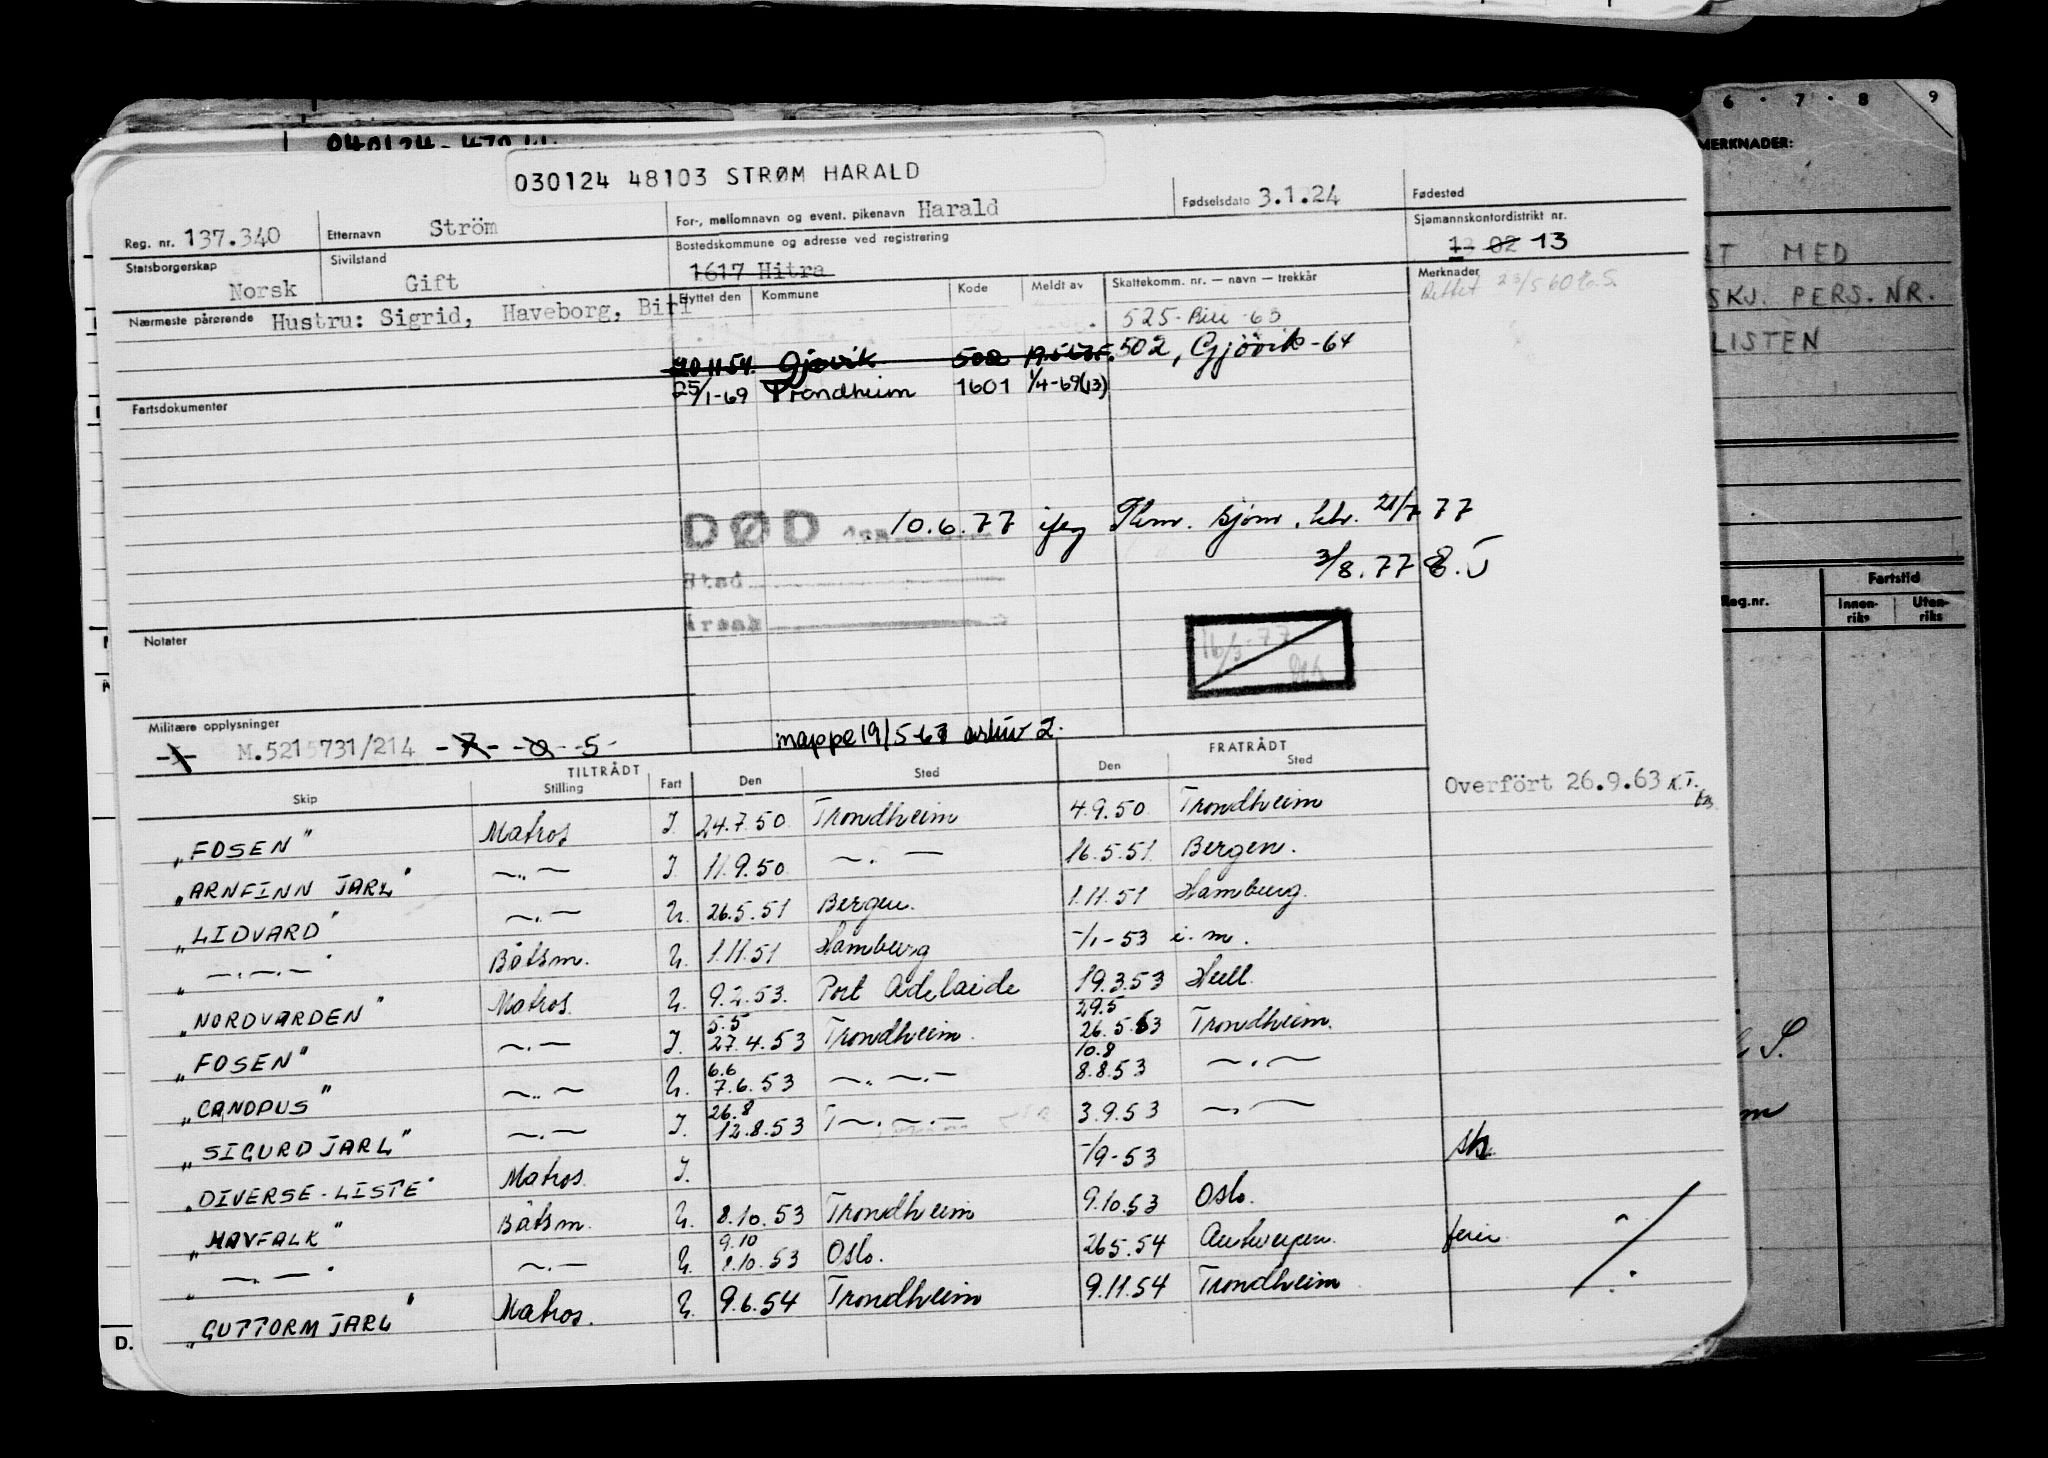 030124 48103 STRØM HARALD
Reg. nr. 137.340 Etternavn Ström For-, mellomnavn og event. pikenavn Harald Fødselsdato 3.1.24 Fødested
Statsborgerskap Norsk Sivilstand Gift Bostedskommune og adresse ved registrering 1617 Hitra Sjømannskontordistrikt nr. 13 02 13
Nærmeste pårørende Hustru: Sigrid, Haveborg, Biri Flyttet den Kommune Kode Meldt av Skattekomm. nr. — navn — trekkår Merknader
Rettet 23/5 60
525 - Biri - 63
20 11 54. Gjøvik 502 502, Gjövik - 64
25/1-69 Trondheim 1601 1/4-69(13)
Fartsdokumenter
DØD 10.6.77 iføg Thm. sjøm. ktr. 21/7 77
Sted
3/8.77
Årsak
Notater
16/3-77
Militære opplysninger
M.5215731/214 -7- -0- -5-
mappe 19/5-67 arkiv 2.
TILTRÅDT FRATRÅDT
Skip Stilling Fart Den Sted Den Sted
Overfört 26.9.63
"FOSEN" Matros J. 24.7.50 Trondheim 4.9.50 Trondheim
"ARNFINN JARL" —"— J. 11.9.50 —.— 16.5.51 Bergen.
"LIDVARD" —.— U. 26.5.51 Bergen. 1.11.51 Hamburg.
"—.—.—" Båtsm. U. 1.11.51 Hamburg -/1-53 i. m.
"NORDVARDEN" Matros. U. 9.2.53. Port Adelaide 19.3.53 Hull.
5.5 29.5
"FOSEN" —.— J. 27.4.53 Trondheim. 26.5.53 Trondheim.
6.6 10.8
"CANOPUS" —"— U. 7.6.53 —.—.— 8.8.53 —.—
26.8
"SIGURD JARL" —.— J. 12.8.53 —.—.— 3.9.53 —.—
"DIVERSE-LISTE" Matros J. -/9-53
"HAVFALK" Båtsm. U. 8.10.53 Trondheim 9.10.53 Oslo.
9.10
"—.—" —.— U. 1.10.53 Oslo. 26.5.54 Antwerpen. ferie
"GUTTORM JARL" Matros. U. 9.6.54 Trondheim 9.11.54 Trondheim
6 · 7 · 8 9
MERKNADER:
MED
SKJ. PERS. NR.
LISTEN
Reg.nr. Fartstid
Innen-riks Uten-riks
D.